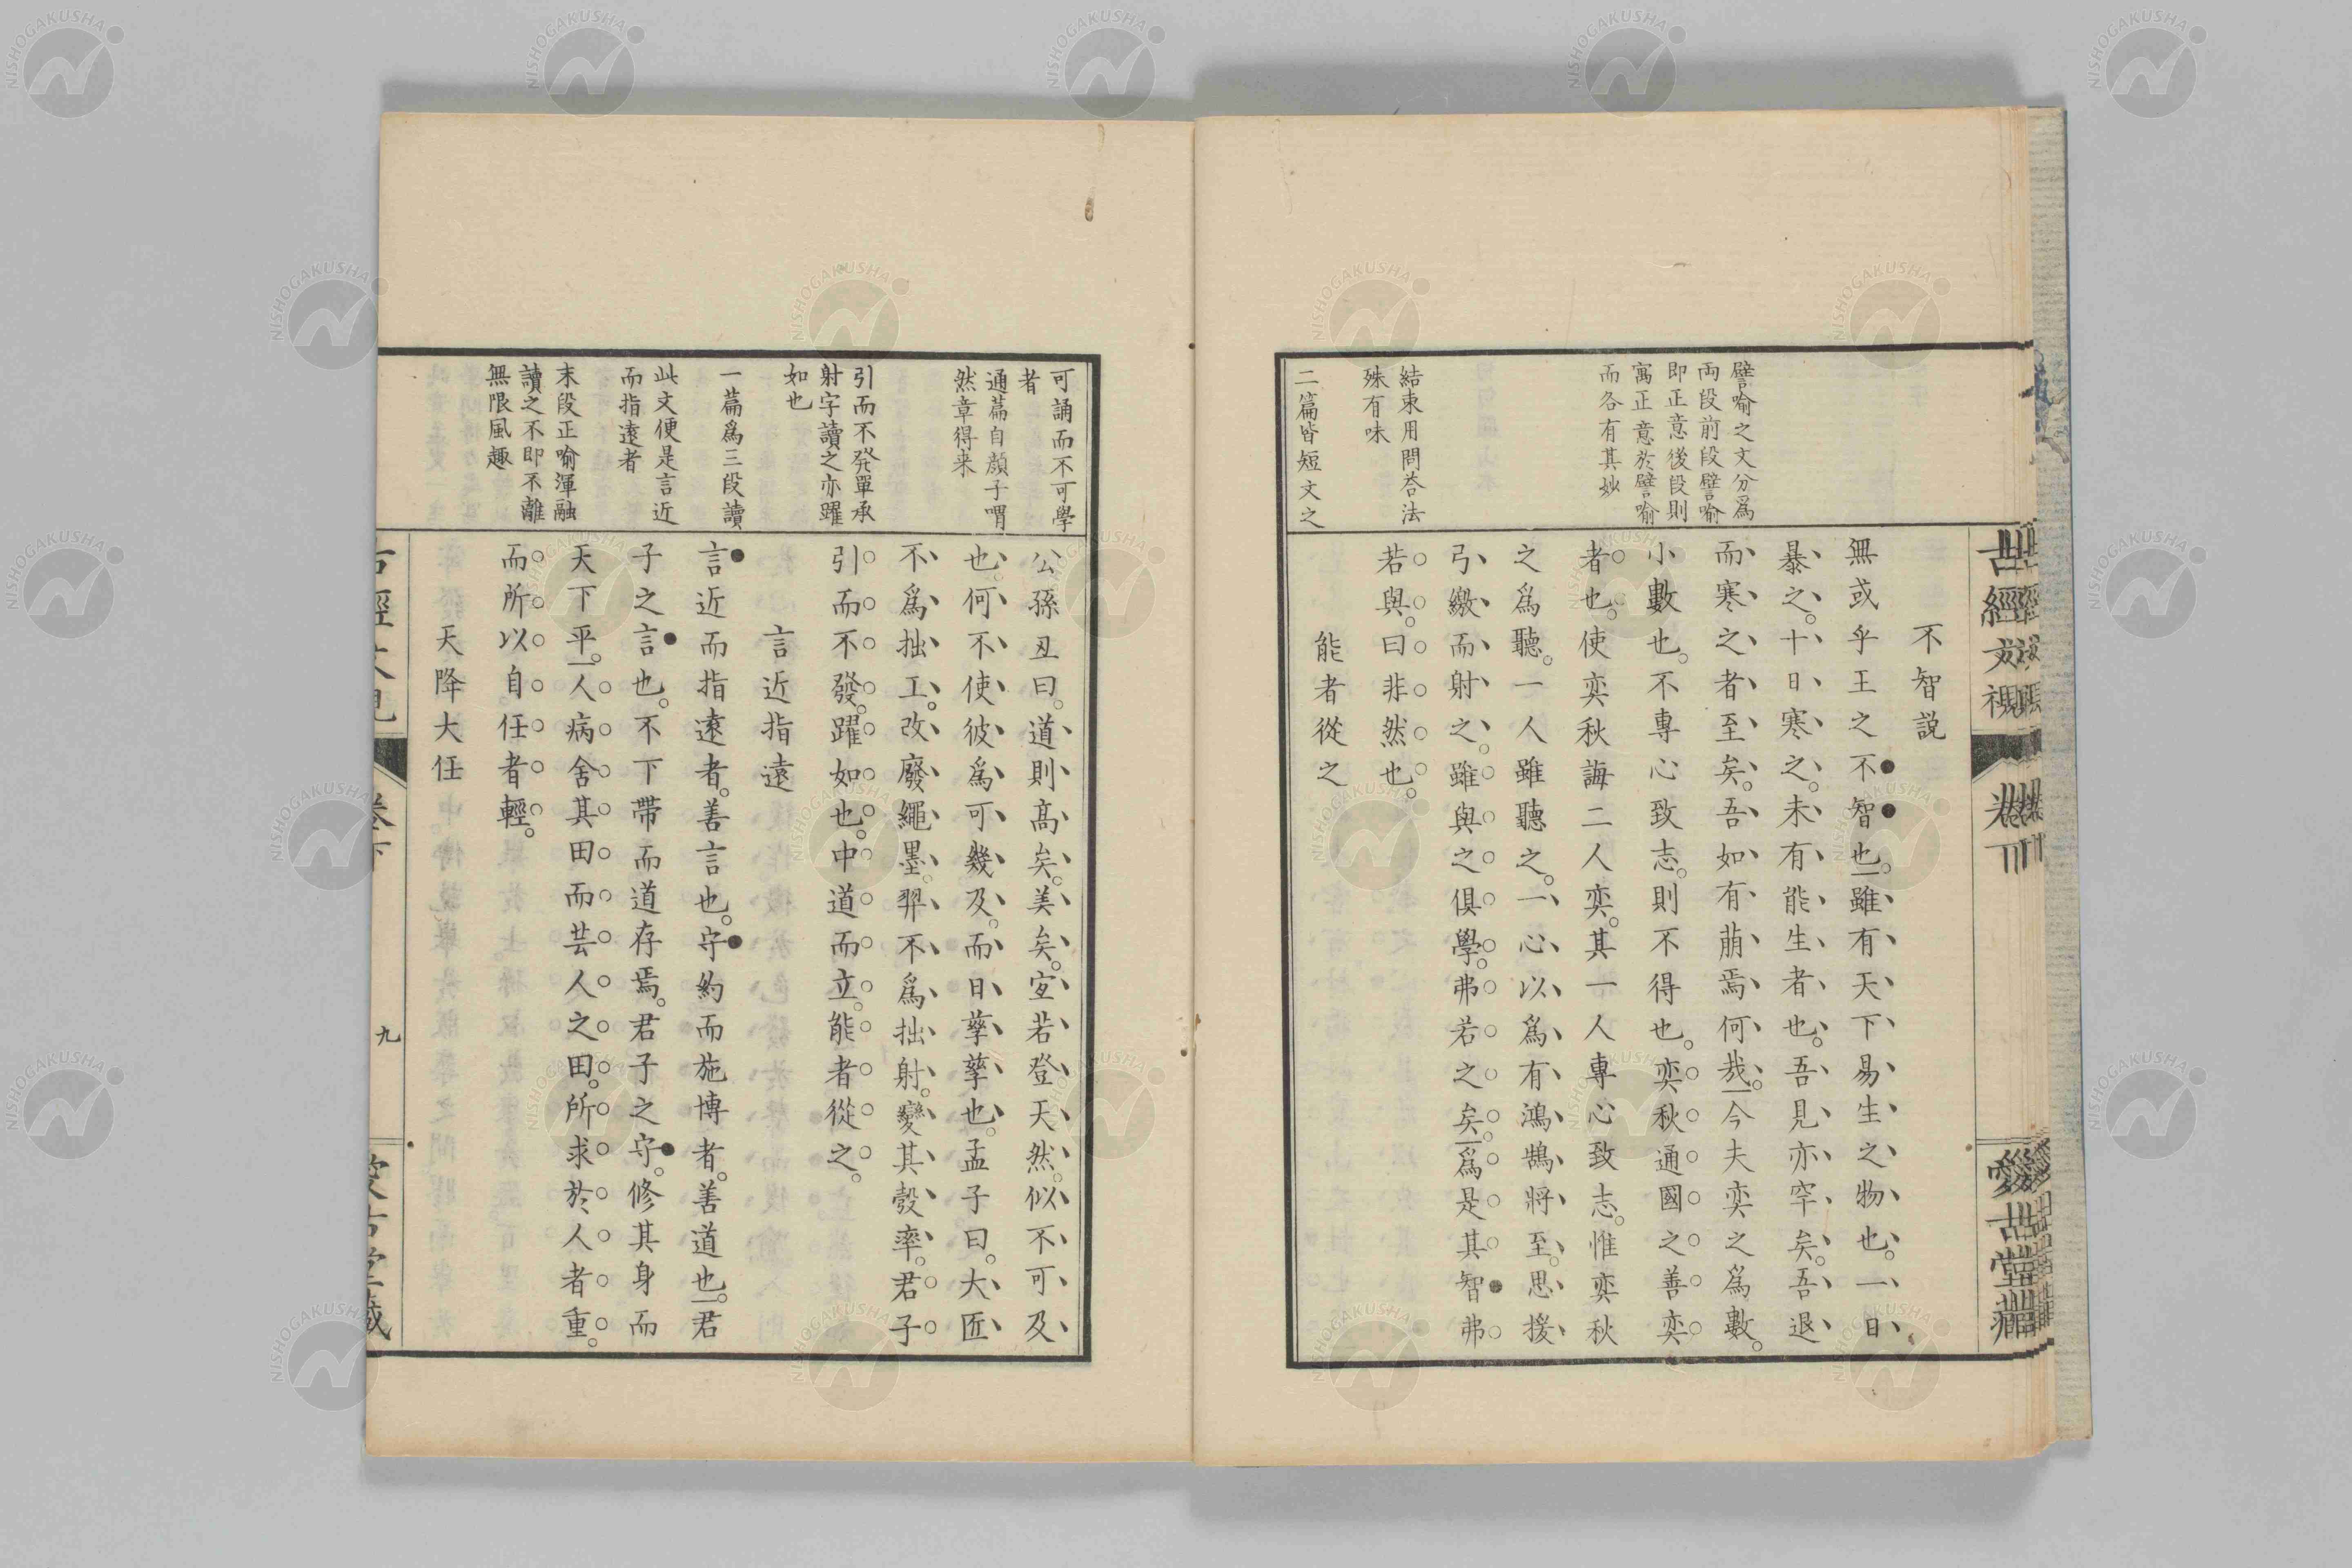 不智説
無或乎王之不智也。雖有天下易生之物也。一日
暴之。十日寒之。未有能生者也。吾見亦罕矣。吾退
而寒之者至矣。吾如有萠焉何哉。今夫奕之爲數。
小數也。不專心致志。則不得也。奕秋通國之善奕
者也。使奕秋誨二人奕。其一人專心致志。惟奕秋
之爲聽。一人雖聽之。一心以爲有鴻鵠將至。思援
弓繳而射之。雖與之俱學。弗若之矣。爲是其智弗
若與。曰非然也。
能者從之
譬喻之文分爲
両段前段譬喻
即正意後段則
寓正意於譬喻
而各有其妙
結束用問荅法
殊有味
二篇皆短文之
可誦而不可學
者
通篇自顔子喟
然章得来
引而不發單承
射字讀之亦躍
如也
一篇爲三段讀
此文便是言近
而指遠者
末段正喻渾融
讀之不即不離
無限風趣
公孫丑曰。道則高矣。美矣。宜若登天然。似不可及
也。何不使彼爲可幾及。而日孳孳也。孟子曰。大匠
不爲拙工。改廢繩墨。羿不爲拙射。變其彀率。君子
引而不發。躍如也。中道而立。能者從之。
言近指遠
言近而指遠者。善言也。守約而施博者。善道也。君
子之言也。不下帶而道存焉。君子之守。修其身而
天下平。人病舍其田而芸人之田。所求於人者重。
而所以自任者輕。
天降大任
九
NISHOGAKUSHA